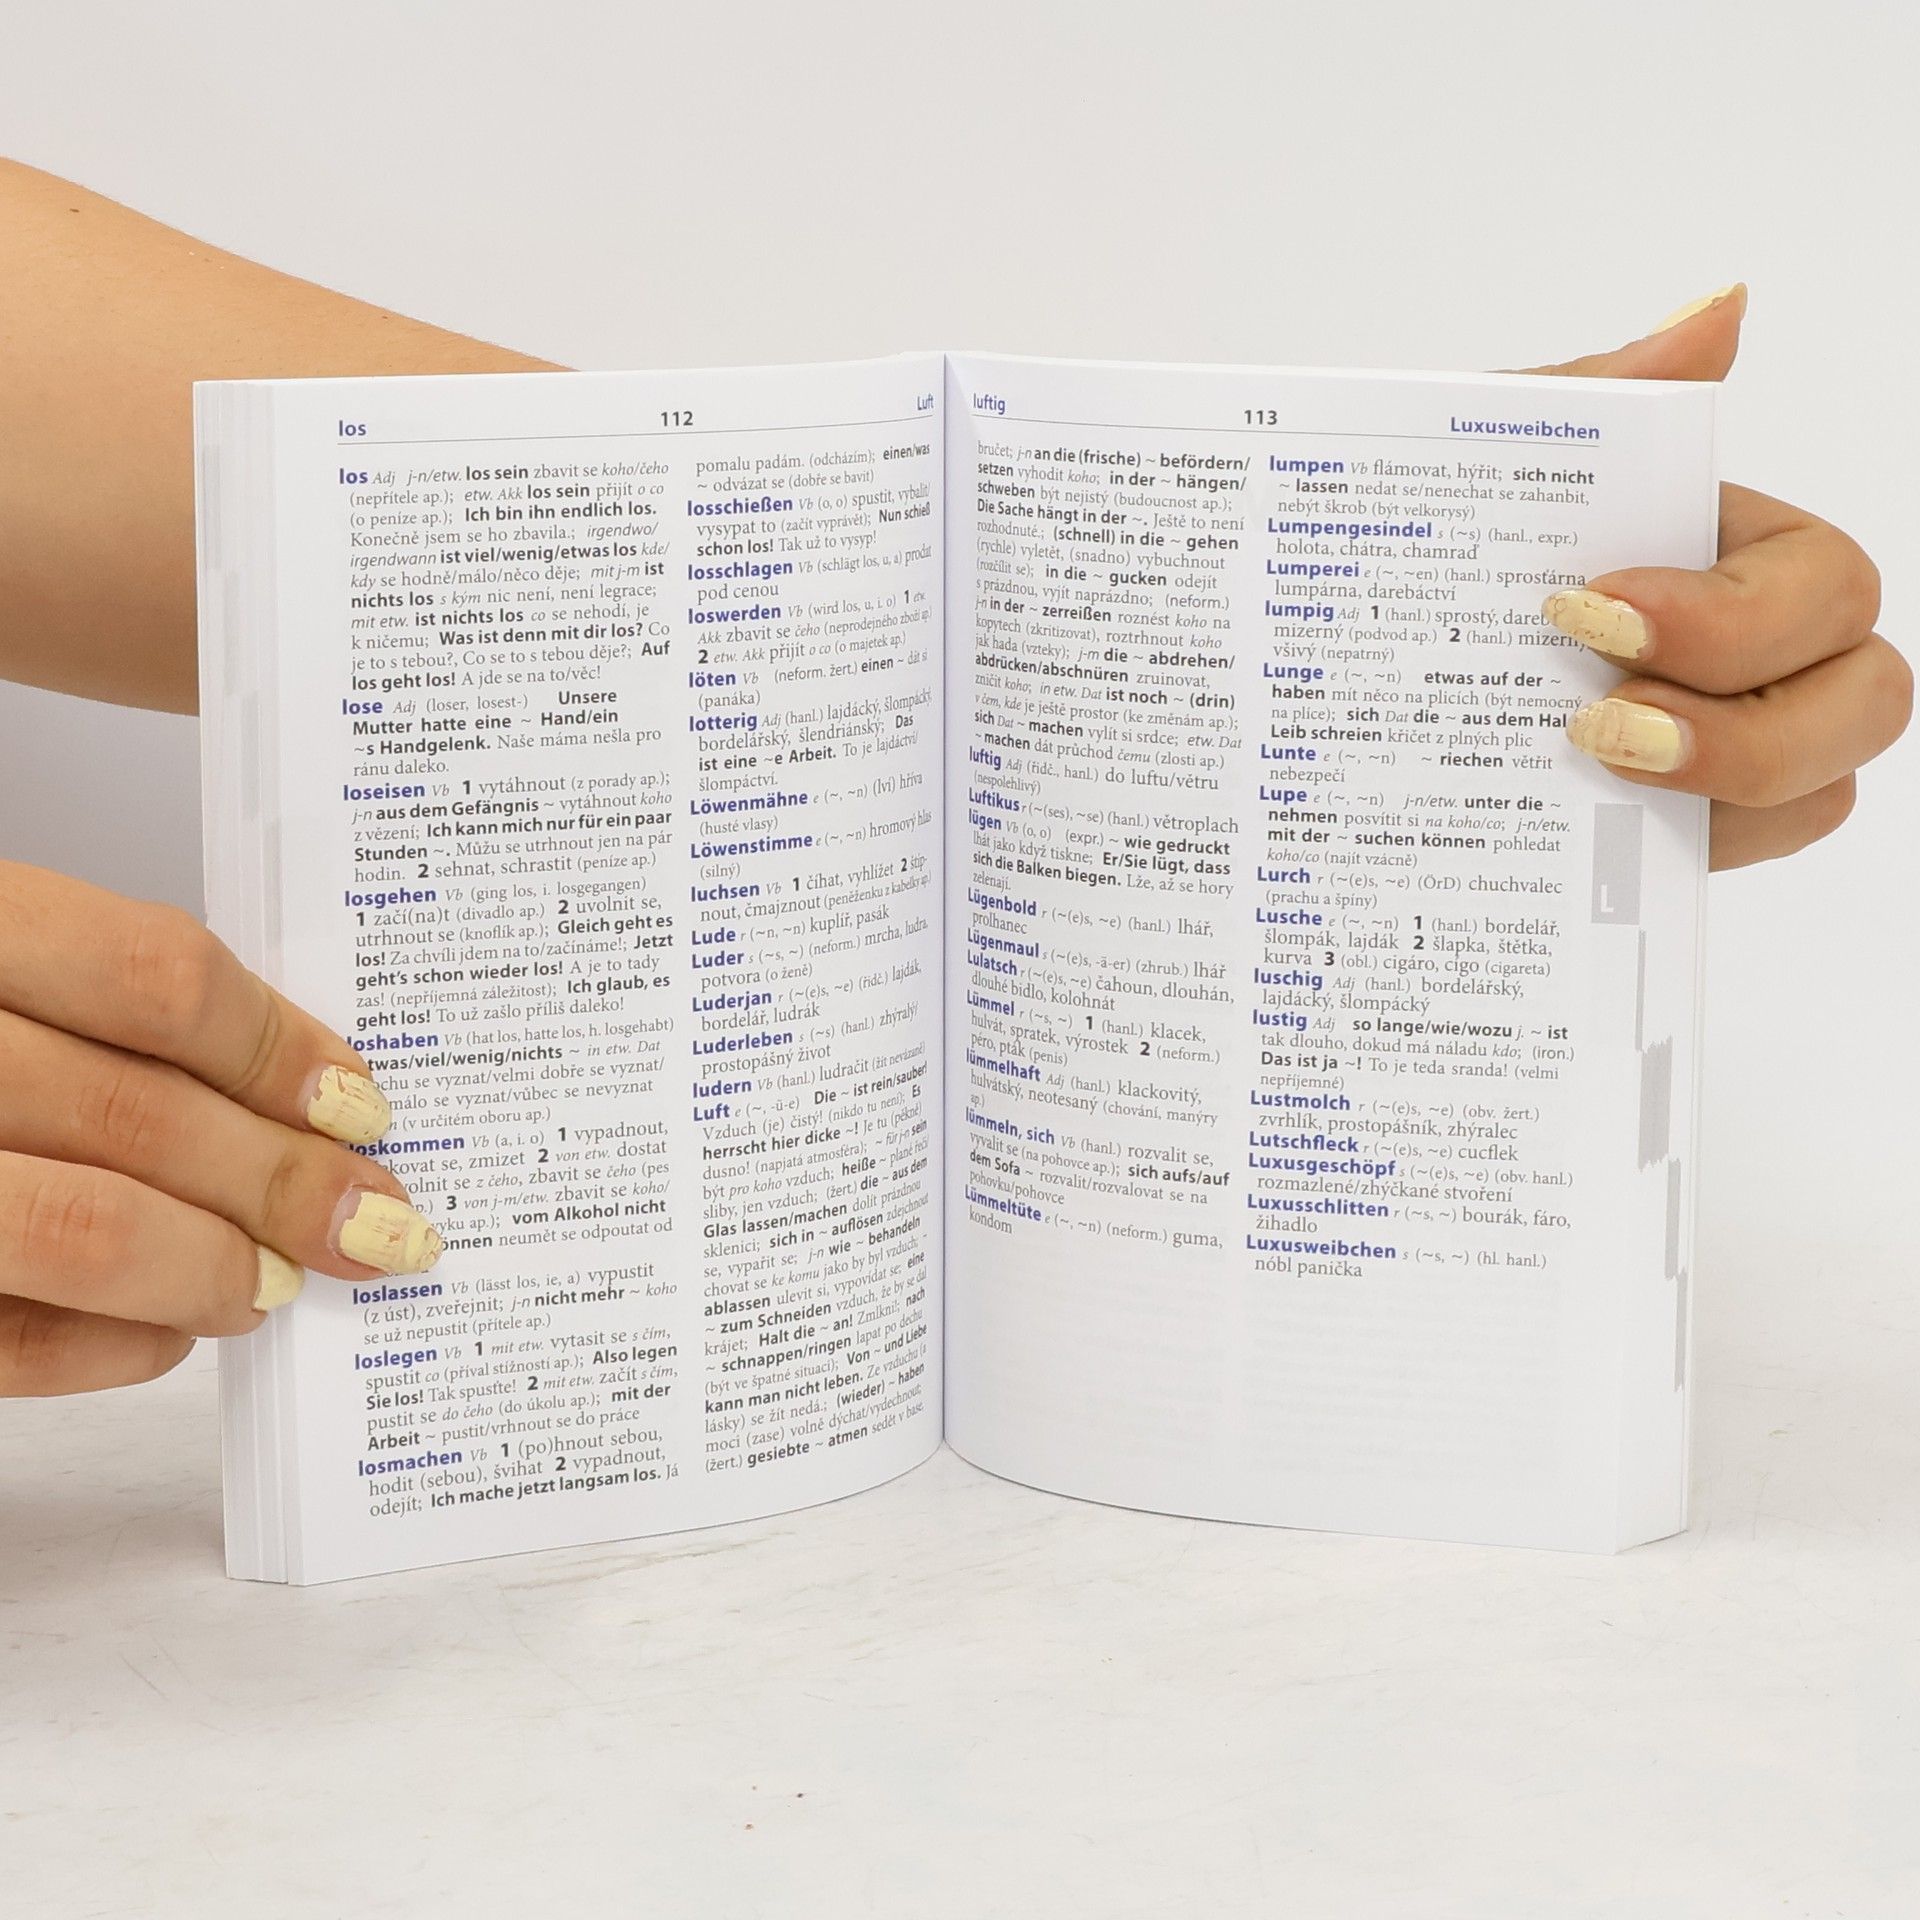 los 112 Luft
los Adj j-n/etw. los sein zbavit se koho/čeho
(nepřítele ap.); etw. Akk los sein přijít o co
(o peníze ap.); Ich bin ihn endlich los.
Konečně jsem se ho zbavila.; irgendwo/
irgendwann ist viel/wenig/etwas los kde/
kdy se hodně/málo/něco děje; mit j-m ist
nichts los s kým nic není, není legrace;
mit etw. ist nichts los co se nehodí, je
k ničemu; Was ist denn mit dir los? Co
je to s tebou?, Co se to s tebou děje?; Auf
los geht los! A jde se na to/věc!
lose Adj (loser, losest-) Unsere
Mutter hatte eine ~ Hand/ein
~s Handgelenk. Naše máma nešla pro
ránu daleko.
loseisen Vb 1 vytáhnout (z porady ap.);
j-n aus dem Gefängnis ~ vytáhnout koho
z vězení; Ich kann mich nur für ein paar
Stunden ~. Můžu se utrhnout jen na pár
hodin. 2 sehnat, schrastit (peníze ap.)
losgehen Vb (ging los, i. losgegangen)
1 začí(na)t (divadlo ap.) 2 uvolnit se,
utrhnout se (knoflík ap.); Gleich geht es
los! Za chvíli jdem na to/začínáme!; Jetzt
geht's schon wieder los! A je to tady
zas! (nepříjemná záležitost); Ich glaub, es
geht los! To už zašlo příliš daleko!
loshaben Vb (hat los, hatte los, h. losgehabt)
etwas/viel/wenig/nichts ~ in etw. Dat
se vyznat/velmi dobře se vyznat/
málo se vyznat/vůbec se nevyznat
(v určitém oboru ap.)
loskommen Vb (a, i. o) 1 vypadnout,
se, zmizet 2 von etw. dostat
z čeho, zbavit se čeho (pes
3 von j-m/etw. zbavit se koho/
ap.); vom Alkohol nicht
können neumět se odpoutat od
loslassen Vb (lässt los, ie, a) vypustit
(z úst), zveřejnit; j-n nicht mehr ~ koho
se už nepustit (přítele ap.)
loslegen Vb 1 mit etw. vytasit se s čím,
spustit co (příval stížností ap.); Also legen
Sie los! Tak spusťte! 2 mit etw. začít s čím,
pustit se do čeho (do úkolu ap.); mit der
Arbeit ~ pustit/vrhnout se do práce
losmachen Vb 1 (po)hnout sebou,
hodit (sebou), švihat 2 vypadnout,
odejít; Ich mache jetzt langsam los. Já
pomalu padám. (odcházím); einen/was
~ odvázat se (dobře se bavit)
losschießen Vb (o, o) spustit, vybalit/
vysypat to (začít vyprávět); Nun schieß
schon los! Tak už to vysyp!
losschlagen Vb (schlägt los, u, a) prodat
pod cenou
loswerden Vb (wird los, u, i. o) 1 etw.
Akk zbavit se čeho (neprodejného zboží ap.)
2 etw. Akk přijít o co (o majetek ap.)
löten Vb (neform. žert.) einen ~ dát si
(panáka)
lotterig Adj (hanl.) lajdácký, šlompácký,
bordelářský, šlendriánský; Das
ist eine ~e Arbeit. To je lajdáctví/
šlompáctví.
Löwenmähne e (~, ~n) (lví) hříva
(husté vlasy)
Löwenstimme e (~, ~n) hromový hlas
(silný)
luchsen Vb 1 číhat, vyhlížet 2 štíp-
nout, čmajznout (peněženku z kabelky ap.)
Lude r (~n, ~n) kuplíř, pasák
Luder s (~s, ~) (neform.) mrcha, ludra,
potvora (o ženě)
Luderjan r (~(e)s, ~e) (řidč.) lajdák,
bordelář, ludrák
Luderleben s (~s) (hanl.) zhýralý/
prostopášný život
ludern Vb (hanl.) ludračit (žít nevázaně)
Luft e (~, -ü-e) Die ~ ist rein/sauber!
Vzduch (je) čistý! (nikdo tu není); Es
herrscht hier dicke ~! Je tu (pěkně)
dusno! (napjatá atmosféra); ~ für j-n sein
být pro koho vzduch; heiße ~ plané řeči/
sliby, jen vzduch; (žert.) die ~ aus dem
Glas lassen/machen dolít prázdnou
sklenici; sich in ~ auflösen zdejchnout
se, vypařit se; j-n wie ~ behandeln
chovat se ke komu jako by byl vzduch; ~
ablassen ulevit si, vypovídat se; eine
~ zum Schneiden vzduch, že by se dal
krájet; Halt die ~ an! Zmlkni!; nach
~ schnappen/ringen lapat po dechu
(být ve špatné situaci); Von ~ und Liebe
kann man nicht leben. Ze vzduchu (a
lásky) se žít nedá.; (wieder) ~ haben
moci (zase) volně dýchat/vydechnout;
(žert.) gesiebte ~ atmen sedět v base,
luftig 113 Luxusweibchen
bručet; j-n an die (frische) ~ befördern/
setzen vyhodit koho; in der ~ hängen/
schweben být nejistý (budoucnost ap.);
Die Sache hängt in der ~. Ještě to není
rozhodnuté.; (schnell) in die ~ gehen
(rychle) vyletět, (snadno) vybuchnout
(rozčílit se); in die ~ gucken odejít
s prázdnou, vyjít naprázdno; (neform.)
j-n in der ~ zerreißen roznést koho na
kopytech (zkritizovat), roztrhnout koho
jak hada (vzteky); j-m die ~ abdrehen/
abdrücken/abschnüren zruinovat,
zničit koho; in etw. Dat ist noch ~ (drin)
v čem, kde je ještě prostor (ke změnám ap.);
sich Dat ~ machen vylít si srdce; etw. Dat
~ machen dát průchod čemu (zlosti ap.)
luftig Adj (řidč., hanl.) do luftu/větru
(nespolehlivý)
Luftikus r (~(ses), ~se) (hanl.) větroplach
lügen Vb (o, o) (expr.) ~ wie gedruckt
lhát jako když tiskne; Er/Sie lügt, dass
sich die Balken biegen. Lže, až se hory
zelenají.
Lügenbold r (~(e)s, ~e) (hanl.) lhář,
prolhanec
Lügenmaul s (~(e)s, -ä-er) (zhrub.) lhář
Lulatsch r (~(e)s, ~e) čahoun, dlouhán,
dlouhé bidlo, kolohnát
Lümmel r (~s, ~) 1 (hanl.) klacek,
hulvát, spratek, výrostek 2 (neform.)
péro, pták (penis)
lümmelhaft Adj (hanl.) klackovitý,
hulvátský, neotesaný (chování, manýry
ap.)
lümmeln, sich Vb (hanl.) rozvalit se,
vyvalit se (na pohovce ap.); sich aufs/auf
dem Sofa ~ rozvalit/rozvalovat se na
pohovku/pohovce
Lümmeltüte e (~, ~n) (neform.) guma,
kondom
lumpen Vb flámovat, hýřit; sich nicht
~ lassen nedat se/nenechat se zahanbit,
nebýt škrob (být velkorysý)
Lumpengesindel s (~s) (hanl., expr.)
holota, chátra, chamraď
Lumperei e (~, ~en) (hanl.) sprosťárna,
lumpárna, darebáctví
lumpig Adj 1 (hanl.) sprostý,
mizerný (podvod ap.) 2 (hanl.) mizerný,
všivý (nepatrný)
Lunge e (~, ~n) etwas auf der ~
haben mít něco na plicích (být nemocný
na plíce); sich Dat die ~ aus dem Hal
Leib schreien křičet z plných plic
Lunte e (~, ~n) ~ riechen větřit
nebezpečí
Lupe e (~, ~n) j-n/etw. unter die ~
nehmen posvítit si na koho/co; j-n/etw.
mit der ~ suchen können pohledat
koho/co (najít vzácně)
Lurch r (~(e)s, ~e) (ÖrD) chuchvalec
(prachu a špíny)
Lusche e (~, ~n) 1 (hanl.) bordelář,
šlompák, lajdák 2 šlapka, štětka,
kurva 3 (obl.) cigáro, cígo (cigareta)
luschig Adj (hanl.) bordelářský,
lajdácký, šlompácký
lustig Adj so lange/wie/wozu j. ~ ist
tak dlouho, dokud má náladu kdo; (iron.)
Das ist ja ~! To je teda sranda! (velmi
nepříjemné)
Lustmolch r (~(e)s, ~e) (obv. žert.)
zvrhlík, prostopášník, zhýralec
Lutschfleck r (~(e)s, ~e) cucflek
Luxusgeschöpf s (~(e)s, ~e) (obv. hanl.)
rozmazlené/zhýčkané stvoření
Luxusschlitten r (~s, ~) bourák, fáro,
žihadlo
Luxusweibchen s (~s, ~) (hl. hanl.)
nóbl panička
L